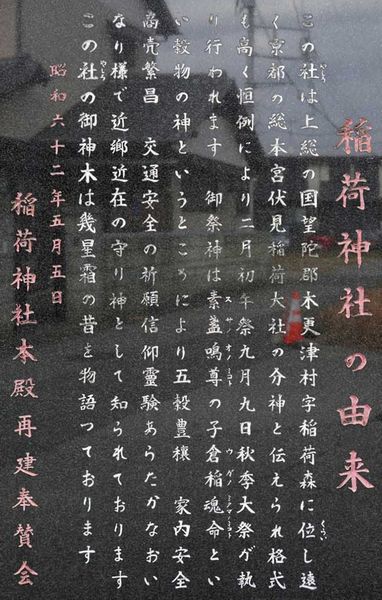 稲荷神社の由来
この社は上総の国望陀郡木更津村字稲荷森に位し遠
く京都の総本宮伏見稲荷大社の分神と伝えられ格式
も高く恒例により二月初午祭九月九日秋季大祭が執
り行われます 御祭神は素盞嗚尊の子倉稲魂命とい
い穀物の神というところにより五穀豊穣 家内安全
商売繁昌 交通安全の祈願信仰霊験あらたかなおい
なり様で近郷近在の守り神として知られております
この社の御神木は幾星霜の昔を物語つております
昭和六十二年五月五日
稲荷神社本殿再建奉賛会